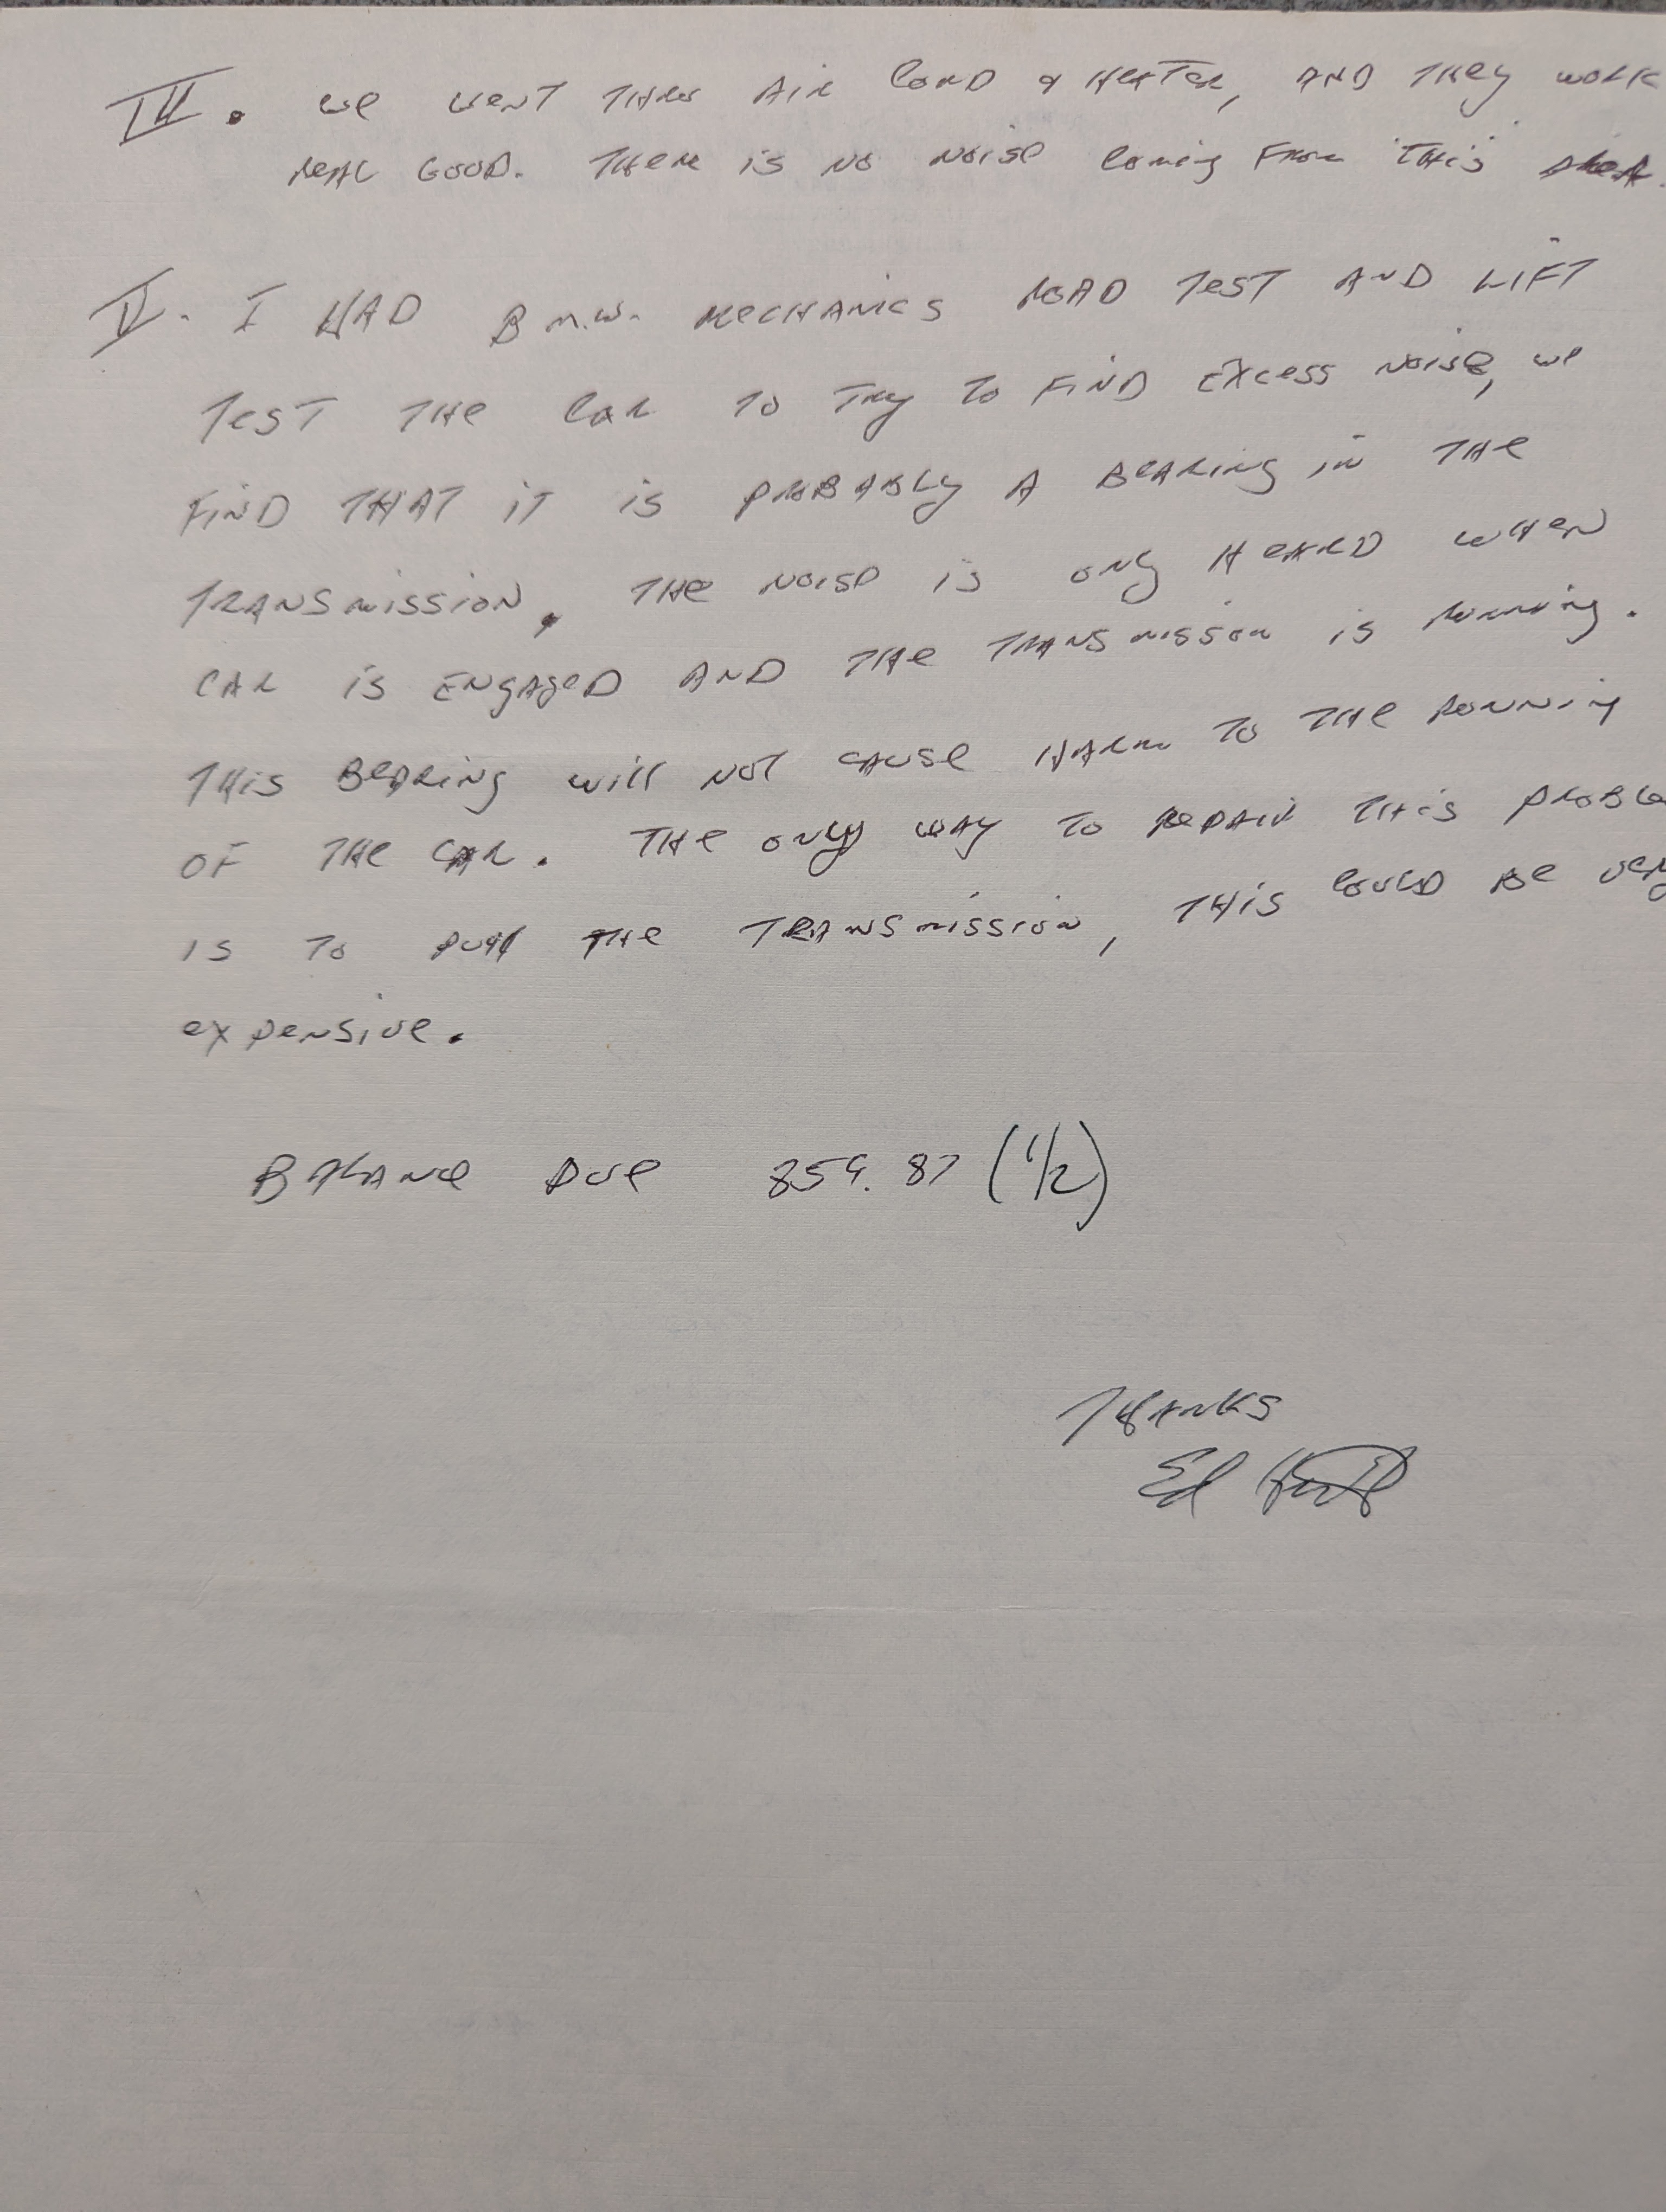 IV. We went thru Air Cond & Heater, and they work
real good. There is no noise coming from this area.
V. I had B.M.W. mechanics road test and lift
test the car to try to find excess noise, we
find that it is probably a bearing in the
transmission, the noise is only heard when
car is engaged and the transmisson is running.
This bearing will not cause harm to the running
of the car. The only way to repair this proble
is to pull the transmission, this could be very
expensive.
Balance Due 859.87 (1/2)
Thanks
Ed